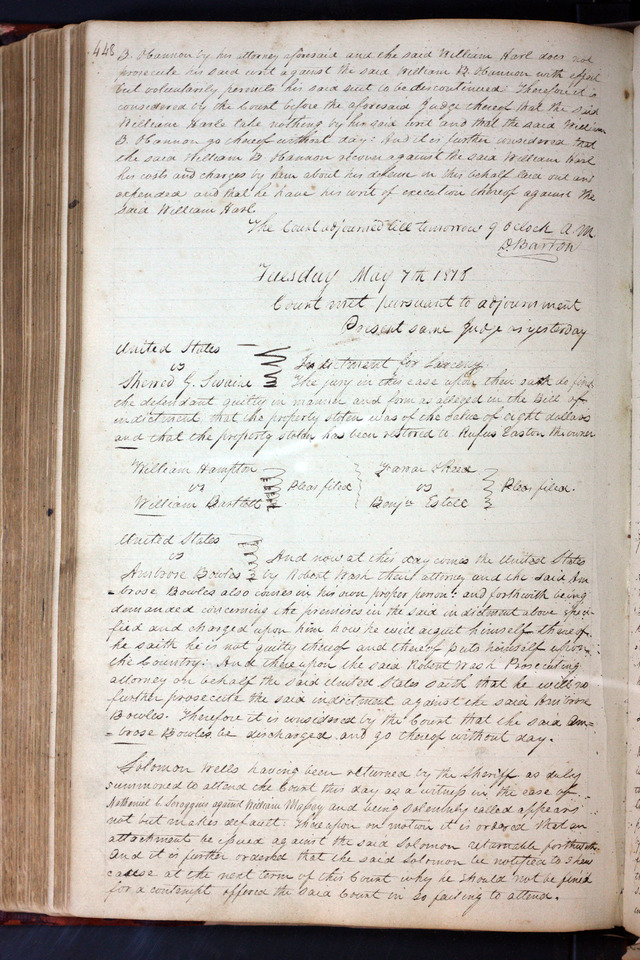 448
B. OBannon by his attorney aforesaid and the said William Harl does not
prosecute his said writ against the said William B. OBannon with effect
but voluntarily permits his said suit to be discontinued. Therefore it is
considered by the Court before the aforesaid Judge thereof that the said
William Harle take nothing by his said writ and that the said William
B. OBannon go thereof without day: And it is further considered that
the said William B OBannon recover against the said William Harl
his costs and charges by him about his defense in this behalf laid out and
expended and that he have his writ of execution thereof against the
said William Harl
The Court adjourned till tomorrow 9 oClock A M
D. Barton
Tuesday May 7th 1818
Court met pursuant to adjournment
Present same Judge as yesterday
United States
vs
Indictment for Larceny
Sherred G. Swain
The jury in this case upon their oath do find
the defendant guilty in manner and form as alleged in the Bill of
indictment that the property stolen was of the value of eight dollars
and that the property stolen has been restored to Rufus Easton the owner
William Hampton
vs
William Bartlett
Pleas filed
Farrar & Reed
vs
Benjn Estill
Pleas filed.
United States
vs
And now at this day comes the United States
Ambrose Bowles by Robert Wash their attorney and the said Am-
-brose Bowles also comes in his own proper person: and forthwith being
demanded concerning the premises in the said indictment above speci-
fied and charged upon him how he will acquit himself thereof
he saith he is not guilty thereof and thereof puts himself upon
the Country: And thereupon the said Robert Wash Prosecuting
attorney on behalf the said United States saith that he will no
further prosecute the said indictment against the said Ambrose
Bowles. Therefore it is considered by the Court that the said Am-
-brose Bowles be discharged and go thereof without day.
Solomon Wells having been returned by the Sheriff as duly
summoned to attend the Court this day as a witness in the case of
Nathaniel L Scroggins against William Massey and being solemnly called appears
not but makes default: Thereupon on motion it is ordered that an
attachment be issued against the said Solomon returnable forthwith
And it is further ordered that the said Solomon be notified to shew
cause at the next term of this Court why he should not be fined
for a contempt offered the said Court in so failing to attend.